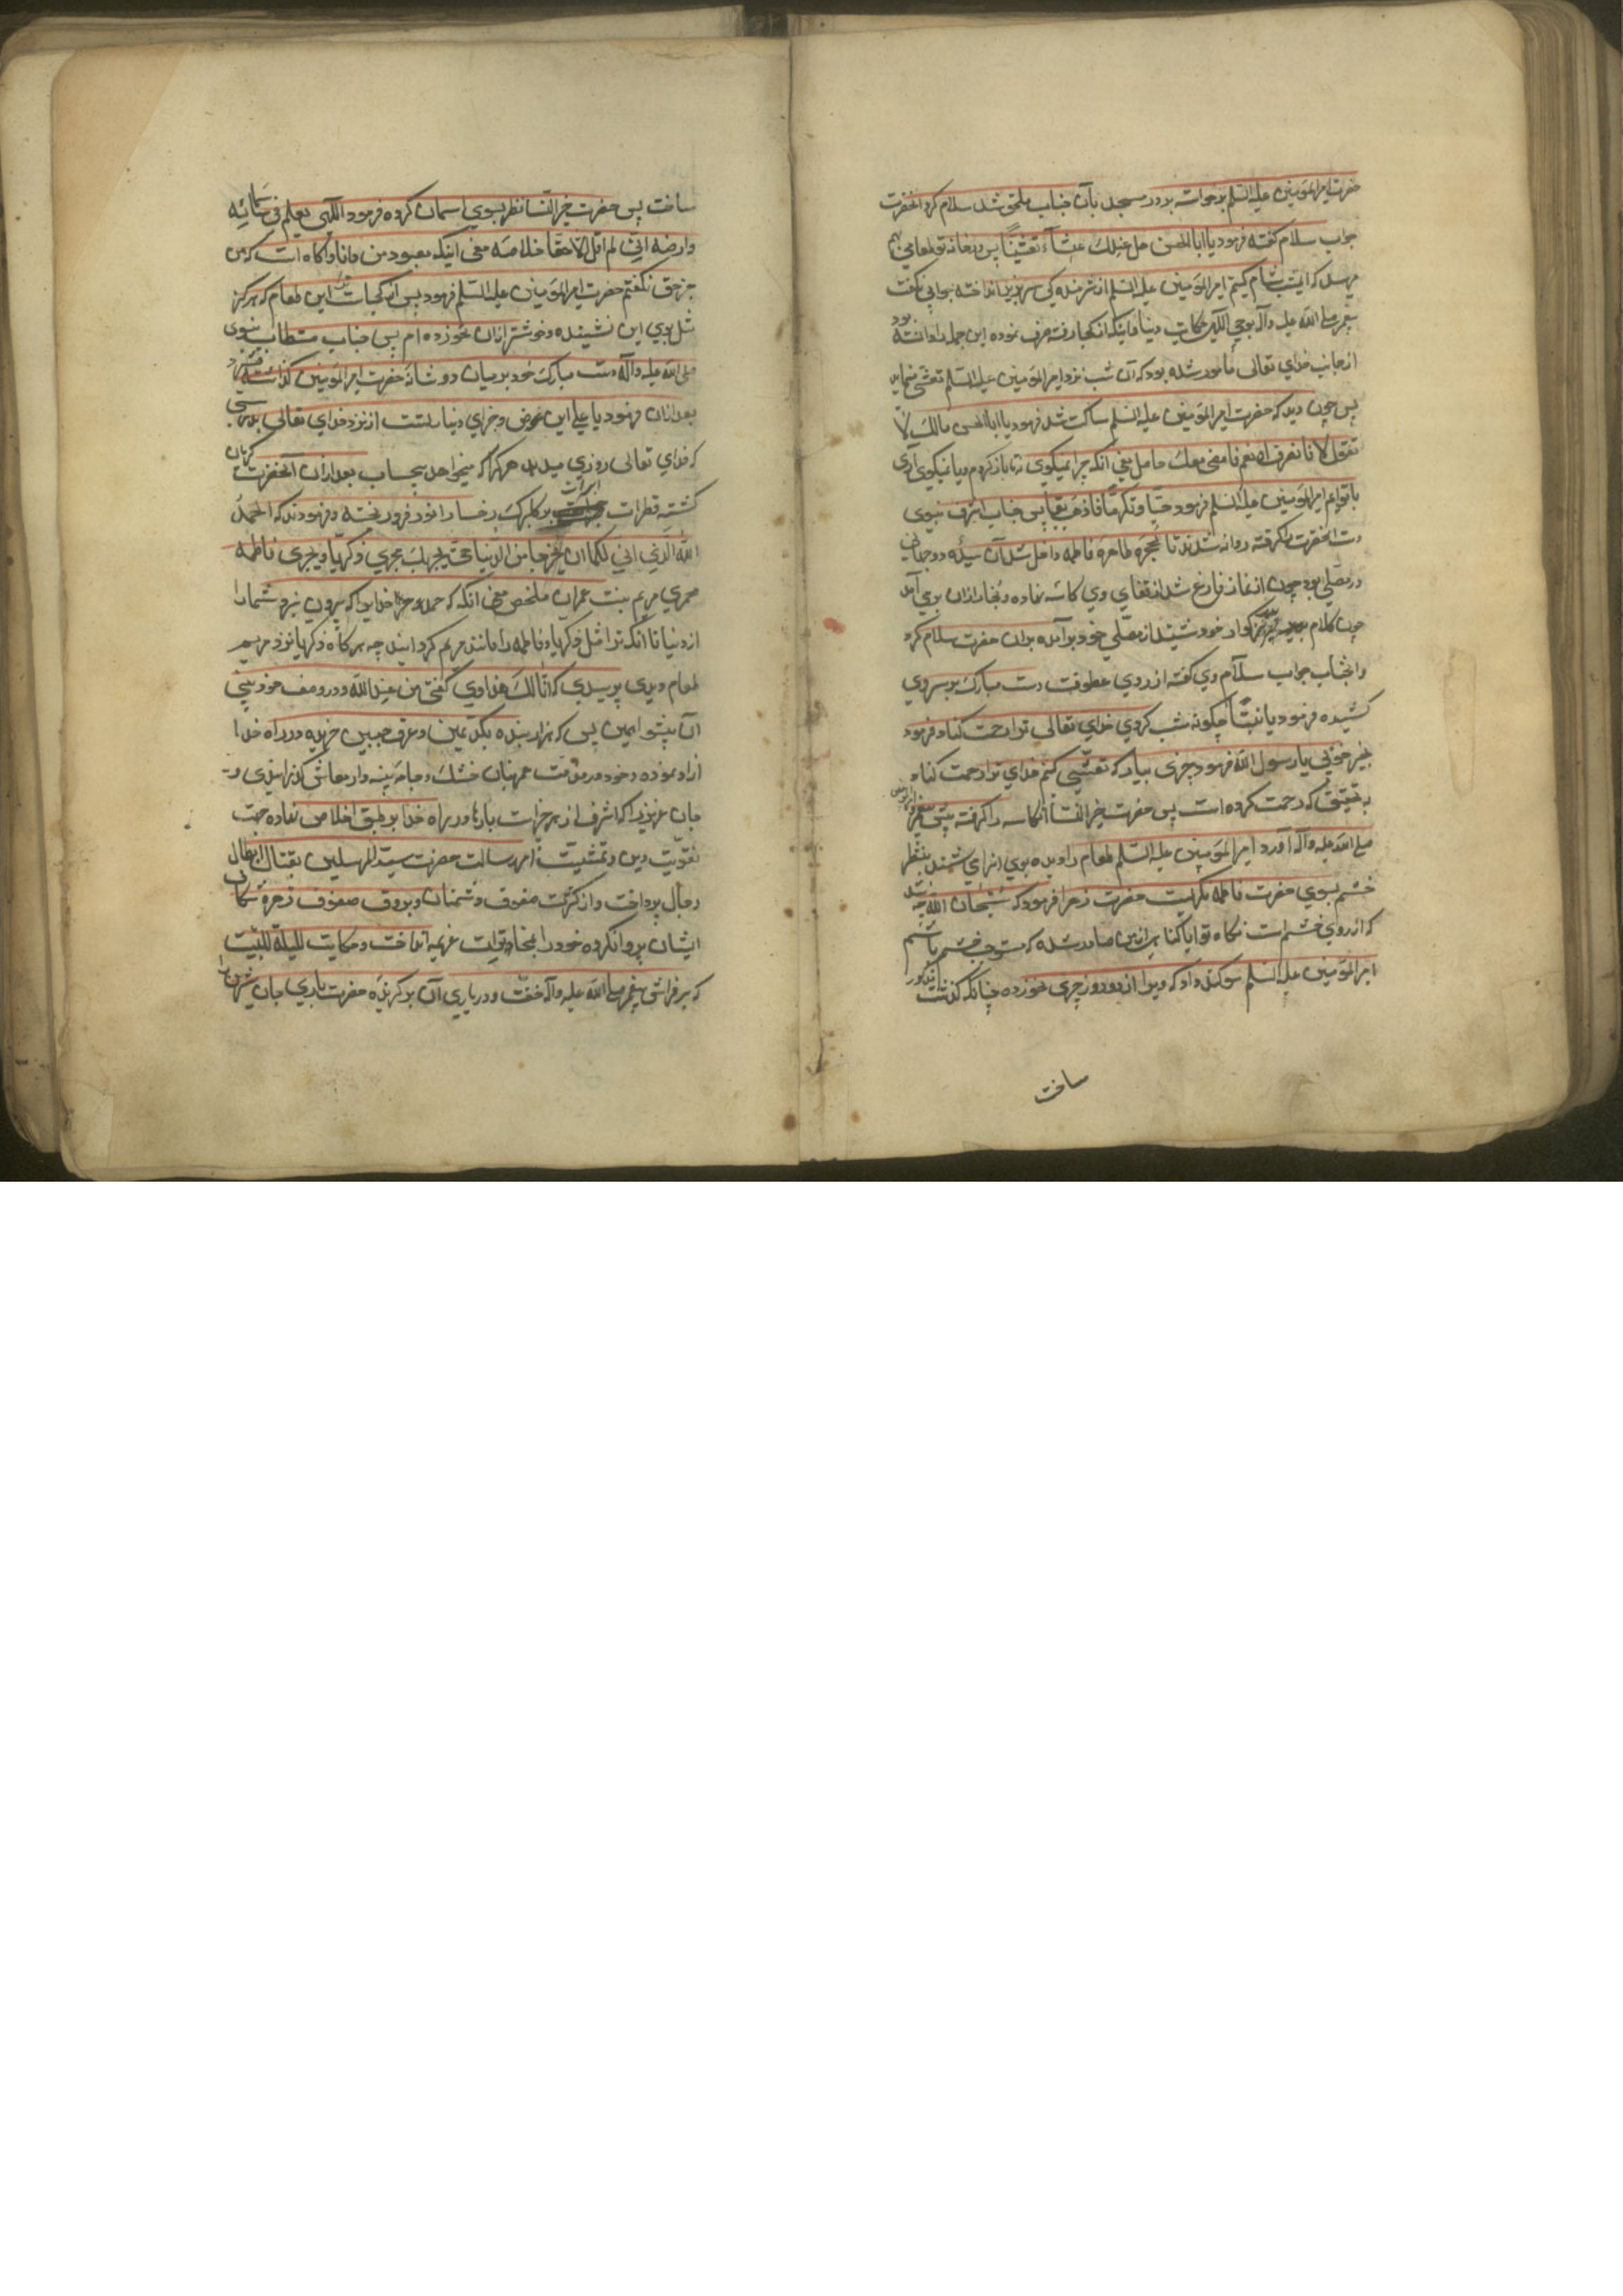 حضرت امیرالمؤمنین علیه السلم برخواسته بر در مسجد بآن جناب ملحق شد سلام کرد آنحضرت
جواب سلام گفته فرمود یا ابا الحسن هل عندک عشاء تعشیناً پس در خانه تو طعامی بهم
میرسد که امشب شام کنیم امیرالمؤمنین علیه السلم از شرمندگی سر بزیر انداخته جوابی نگفت
پیغمبر صلی الله علیه وآله بوحی الهی حکایت دینار و اینکه از کجا رفته صرف نموده این جمله را دانسته بود
از جانب خدای تعالی مأمور شده بود که آن شب نزد امیرالمؤمنین علیه السلم تعشی نماید
پس چون دید که حضرت امیرالمؤمنین علیه السلم ساکت شد فرمود یا ابا الحسن مالک لا
تقول لا فانصرف او نعم فامضی معک حاصل معنی آنکه چرا نمیگوی نه تا باز گردم و یا نمیگوی آری
با تو آیم امیرالمؤمنین علیه السلم فرمود حبّا و تکرّما فاذهب بنا پس جناب اشرف نبوی
دست آنحضرت را گرفته روانه شدند تا بحجره طاهره فاطمه داخل شد آن سیده دو جهانی
در مصلی بود چون از نماز فارغ شد از قفای وی کاسه نهاده و بخار از ان بر می آمد
چون کلام پدر بزرگوار خود شنید از مصلی خود بر آمده بران حضرت سلام کرد
و انجناب جواب سلام وی گفته از روی عطوفت دست مبارک بر سر وی
کشیده فرمود یا بنتاه چگونه شب کردی خدای تعالی ترا رحمت کناد فرمود
بخیر و خوبی یا رسول الله فرمود چیزی بیار که تعشی کنم خدای ترا رحمت کناد و
بتحقیق که رحمت کرده است پس حضرت خیر النسا آن کاسه را گرفته پیش پیغمبر
صلی الله علیه وآله آورد امیرالمؤمنین علیه السلم طعام را دیده بوی انرا شنید بنظر
خشم بسوی حضرت فاطمه نگریست حضرت زهرا فرمود که سبحان الله چه
که از روی خشم است نگاه تو ایا گناهی از من صادر شده که مستوجب خشم باشم
امیرالمؤمنین علیه السلم سوگند داد که وی از دو روز چیزی نخورده چنانکه گذشت
ساخت
ساخت پس حضرت خیر النسا نظر بسوی اسمان کرده فرمود الهی یعلم فی سمائه
وارضه انی لم اقل الا حقا خلاصه معنی اینکه معبود من دانا و اکاه است که من
جز حق نگفتم حضرت امیرالمؤمنین علیه السلم فرمود پس از کجاست این طعام که هرگز
مثل بوی این نشنیده و خوشتر از ان نخورده ام پس جناب مستطاب نبوی
صلی الله علیه وآله دست مبارک خود بر میان دو شانه حضرت امیرالمؤمنین گذاشته
بعد از ان فرمود یا علی این عوض و جزای دینار تست از نزد خدای تعالی بدرستی
که خدای تعالی روزی میدهد هر کرا که میخواهد بیحساب بعد از ان آنحضرت گریان
گشته قطرات عبرات بر گلبرک رخسار انور فرو ریخته و فرمودند که الحمد
الله الذی ابی لکما ان یخرجکما من الدنیا حتی یجریک مجری زکریا و یجری فاطمه
مجری مریم بنت عمران ملخص معنی آنکه که حمد مر خدایرا که بیرون نبرد شما را
از دنیا تا آنکه ترا مثل زکریا و فاطمه را مانند مریم گردانید چه هر گاه زکریا نزد مریم
طعام دیدی پرسیدی که انّا لک هذا وی گفتی من عند الله و در وصف خود بینی
آن پیشوای دین پس که هزار بنده بکد یمین و عرق جبین خریده در راه خدا
آزاد نموده و خود در مدت عمر بنان خشک و جامه پینه دار معاش گذرانیدی و
جان عزیز را که اشرف از هر خیرات بارها در راه خدا بر طبق اخلاص نهاده جهت
تقویت دین و تمشیت امر رسالت حضرت سید المرسلین بقتال ابطال
رجال پرداخت و از کثرت صفوف دشمنان و بروق صفوف
ایشان پروا نکرده خود را انداخت و حکایت لیلة المبیت
که بر فراش پیغمبر صلی الله علیه وآله خفت و در یاری آن برگزیده حضرت باری جان شیرین